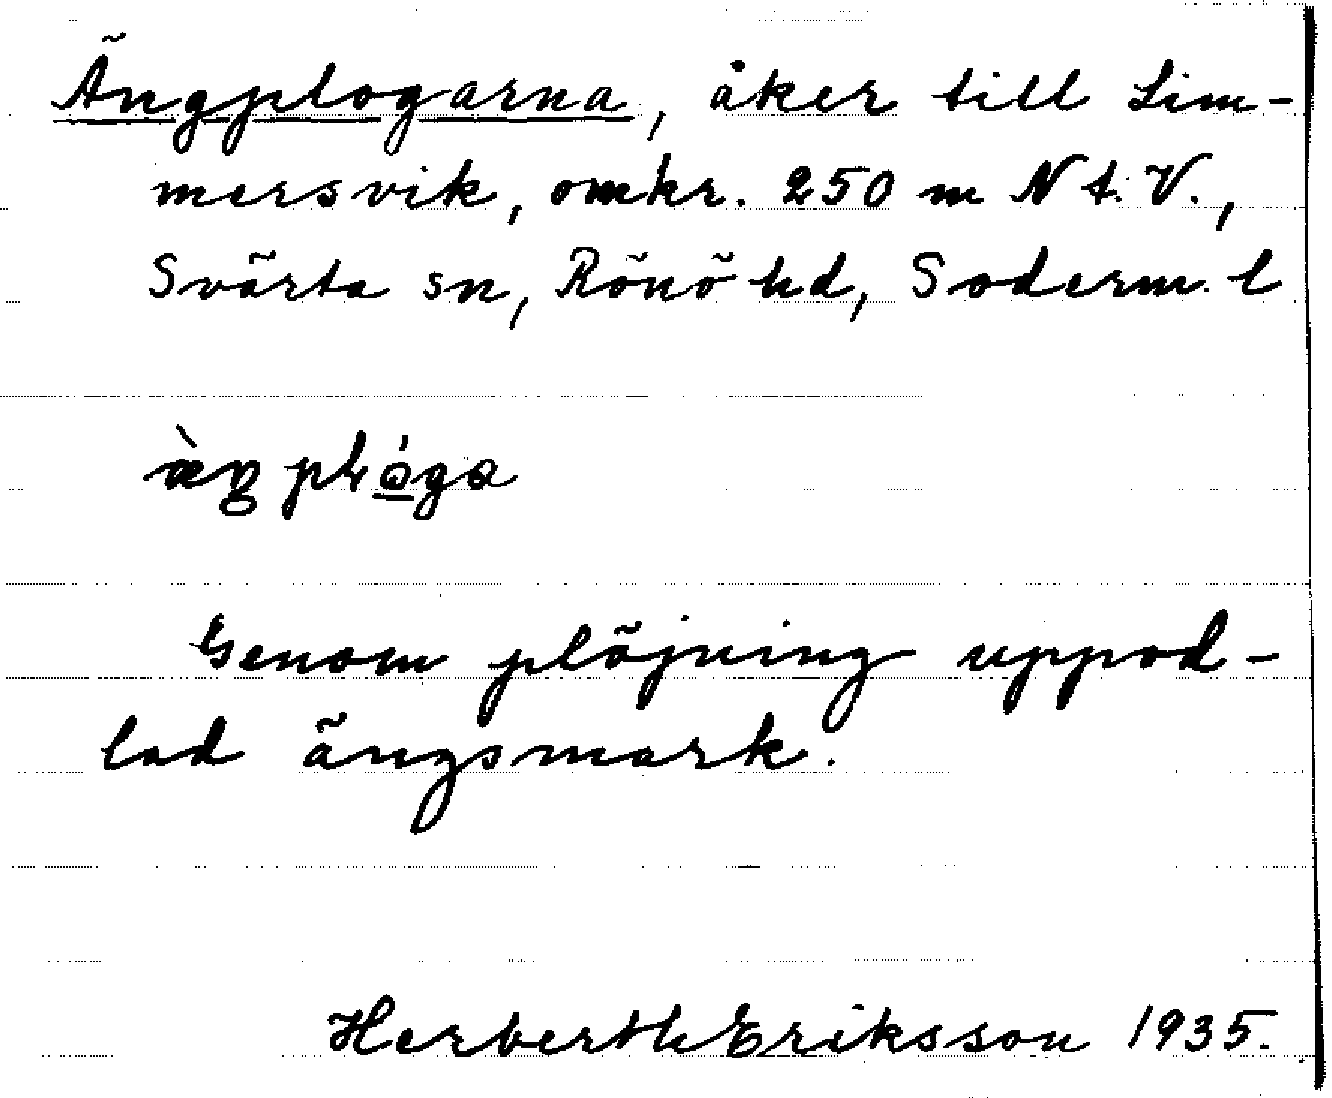 Ängplogarna, åker till Lim-
mersvik, omkr. 250 m N t. V.,
Svärta sn, Rönö hd, Söderm. l
æ̀ŋ plɷ́ga
Genom plöjning uppod-
lad ängsmark.
Herberth Eriksson 1935.